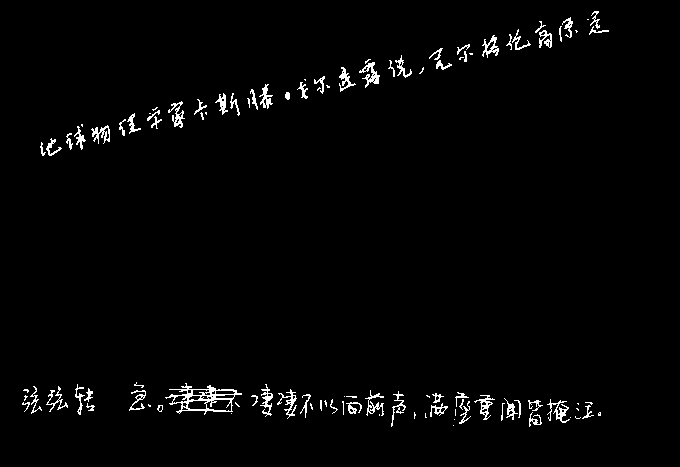 地球物理学家卡斯滕。卡尔透露说，克尔格伦高原是
弦弦转 急。凄凄不似向前声，满座重闻皆掩泣。